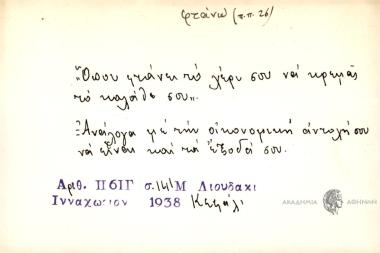 φτάνω (π.π. 26)
"Όπου φτάνει τό χέρι σου νά κρεμᾷς
τό καλάθι σου".
Ἀνάλογα μέ τήν οἰκονομική ἀντοχή σου
νά εἶναι καί τά ἔξοδά σου.
Αριθ. ΠΘΙΓ σ. 141 Μ Λιουδακι
Ινναχωριον 1938 Κεφάλι
ΑΚΑΔΗΜΙΑ ΑΘΗΝΩΝ